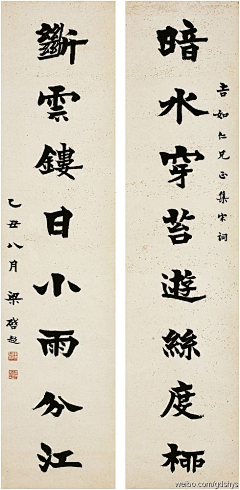 暗水穿苔遊絲度柳
吉如仁兄正集宋詞
斷雲鏤日小雨分江
乙丑八月 梁啟超
weibo.com/gdshys